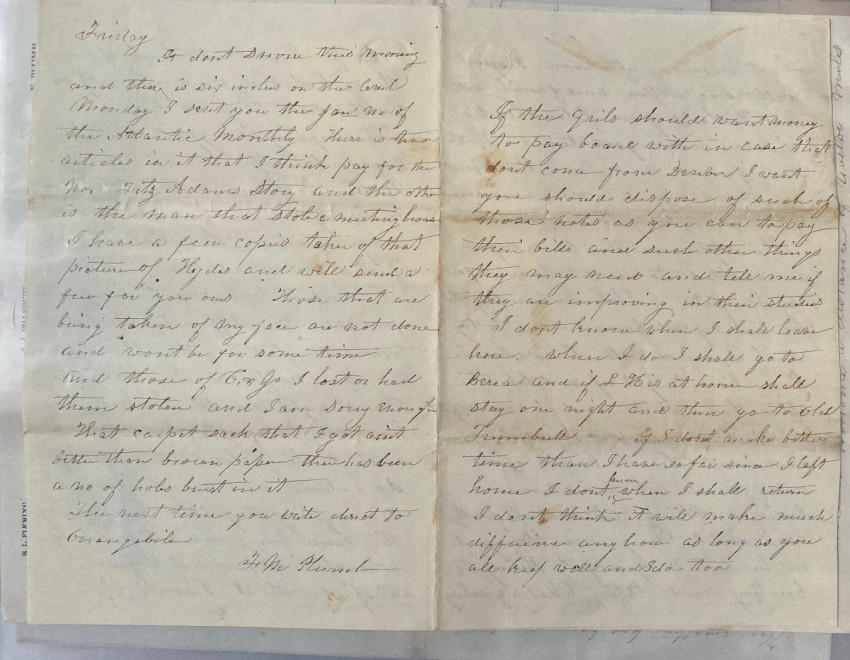 Friday
It dont snow this morning
and there is six inches on the level
Monday I sent you the Jan no of
the Atlantic Monthly There is two
articles in it that I think pay for the
No. Fitz Adams Story and the other
is the man that stole a meeting house
I have a few copies taken of that
picture of Hydes and will send a
few for you ones Those that are
being taken of my face are not done
and wont be for some time
and those of I lost or had
them stolen and I am sorry enough
That carpet sack that I got aint
better than brown paper there has been
a no of hols bust in it
The next time you write direct to
F M
If the girls should want money
to pay board with in case that
dont come from Denver I want
you should dispose of such of
those notes as you can to pay
their bills and such other things
they may need and tell me if
they are improving in their studies
I dont know when I shall leave
here. When I do I shall go to
Berea and if L H is at home shall
stay one night and then go to Old
Trumbull If I dont make better
time than I have so far since I left
home I dont know when I shall return
I dont think it will make much
diffrince anyhow as long as you
all keep well and I do too
S. L. FLEMING